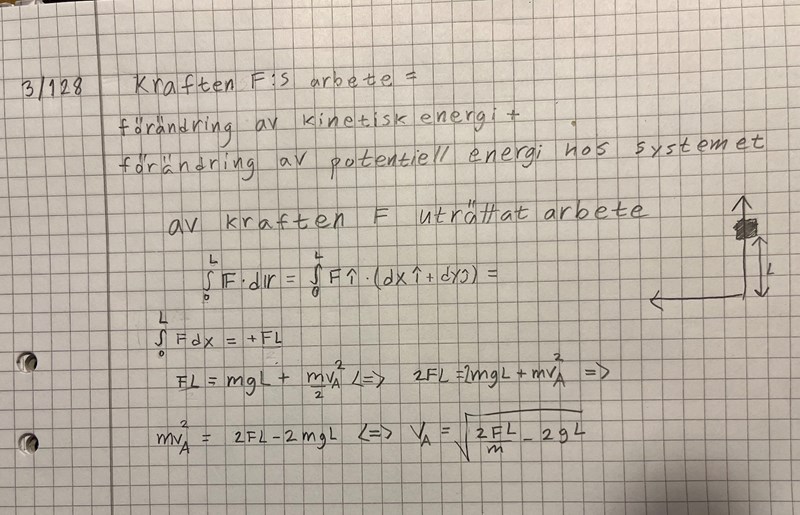 3/128 Kraften F:s arbete =
förändring av kinetisk energi +
förändring av potentiell energi hos systemet
av kraften F uträttat arbete
∫₀ᴸ 𝔽·d𝕣 = ∫₀ᴸ Fî·(dxî+dyĵ) =
∫₀ᴸ Fdx = +FL
FL = mgL + mv_A²/2 <=> 2FL = 2mgL + mv_A² =>
mv_A² = 2FL - 2mgL <=> v_A = √(2FL/m - 2gL)
L